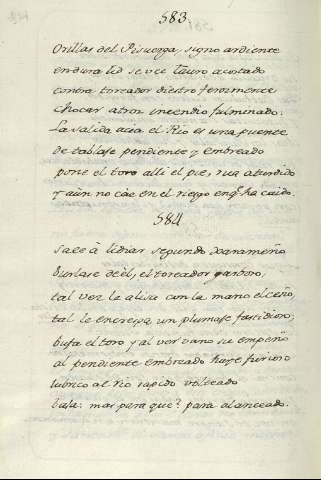 583.
Orillas del Pisuerga, signo ardiente
en dura lid se vee Tauro acosado
contra toreador diestro ferozmente
chocar atroz incendio fulminado:
La salida acia el Rio es una puente
de tablas e pendiente y embreado
pone el toro alli el pie, rua aturdido
y aùn no cáe en el riesgo en q.e ha caido.
584
Sale à lidiar segundo Xarameño
burlase de èl, el toreador garboso,
tal vez la alisa con la mano el ceño,
tal le encrespa un plumaje fastidioso;
bufa el toro y al ver vano su empeño
al pendiente embreado huye furioso
lubrico al rio rapido volteado
baja: mas para què? para alanceado.